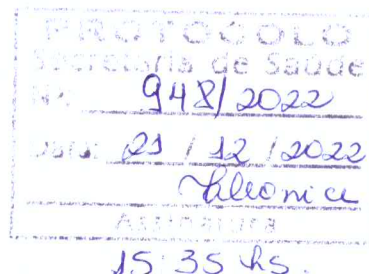 PROTOCOLO
Secretaria de Saúde
Nº 948/2022
Data: 21 / 12 / 2022
Cleonice
Assinatura
15:35 hs.